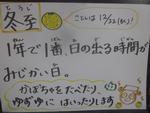 とうじ
冬至
ことしは12/22(げつ)
1年で1番、日の出る時間が
みじかい日。
かぼちゃをたべたり、
ゆずゆに はいったりします